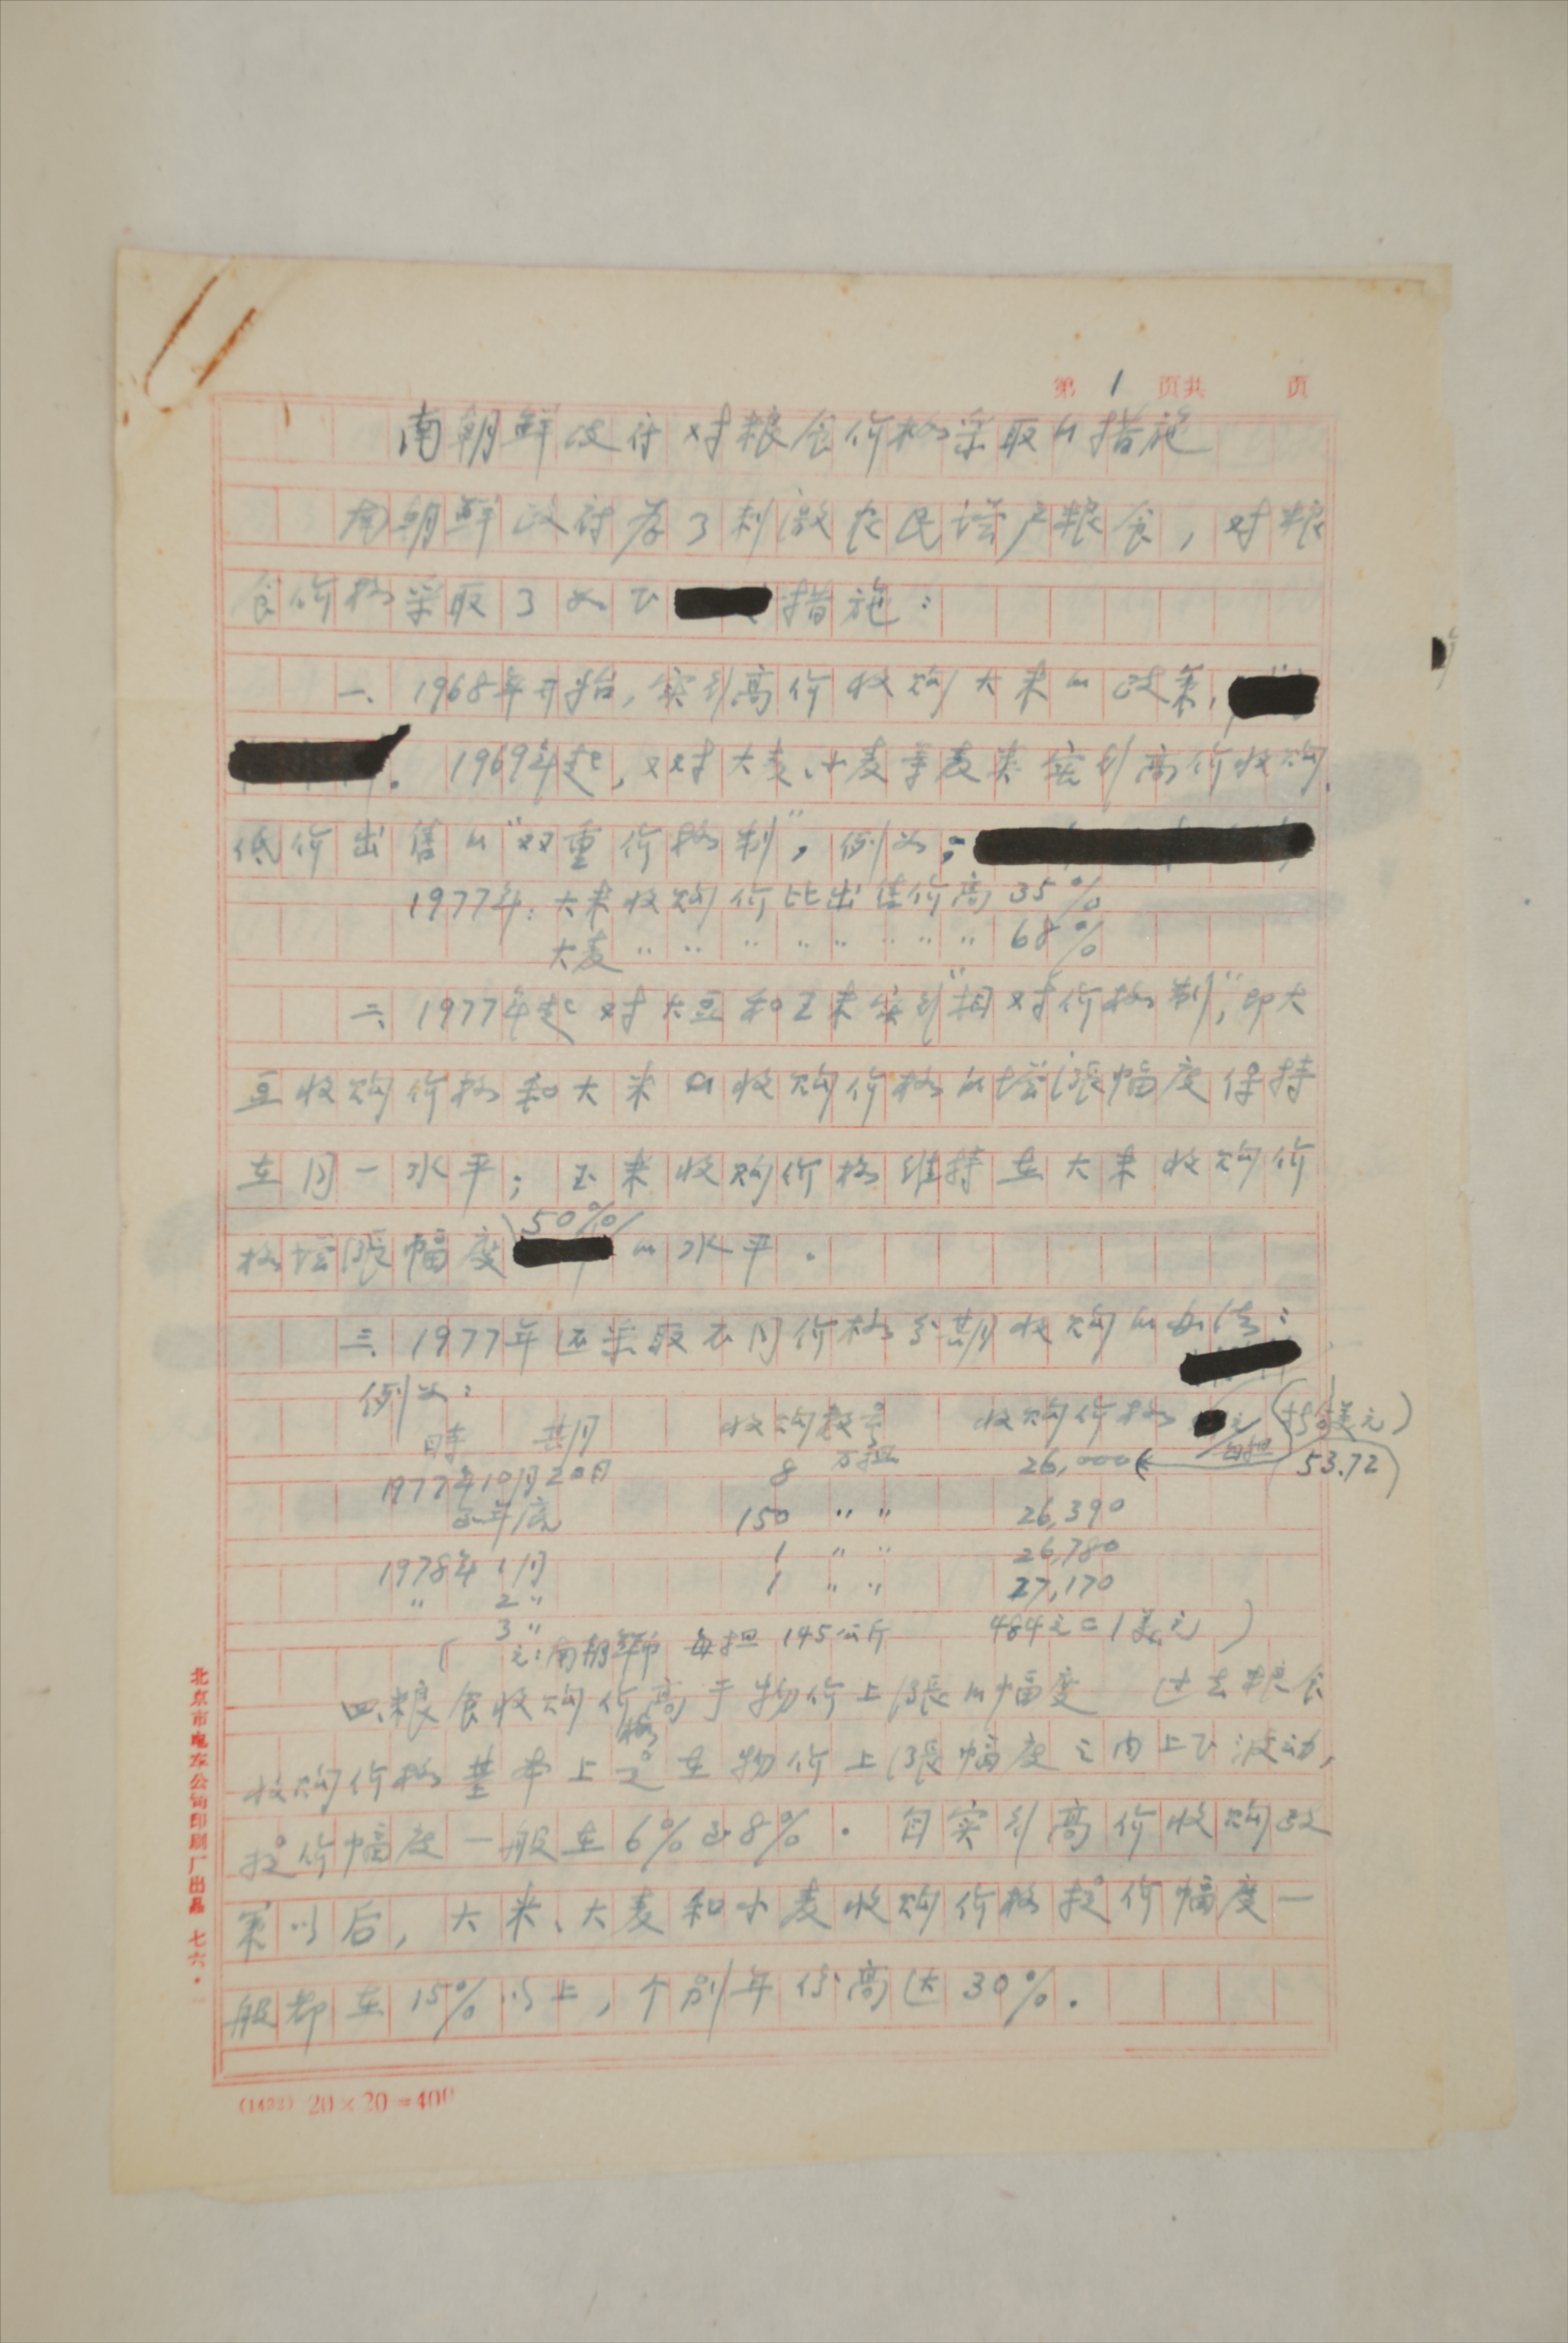 第 1 页共 页
南朝鲜政府对粮食价格采取的措施
南朝鲜政府为了刺激农民增产粮食，对粮
食价格采取了如下措施：
一、1968年开始，实行高价收购大米的政策，
。1969年起，又对大麦、小麦等麦类实行高价收购、
低价出售的“双重价格制”，例如：
1977年：大米收购价比出售价高 35%
大麦 〃 〃 〃 〃 〃 〃 〃 〃 68%
二、1977年起对大豆和玉米实行“相对价格制”，即大
豆收购价格和大米的收购价格的增涨幅度保持
在同一水平；玉米收购价格维持在大米收购价
格增涨幅度50%的水平。
三、1977年还采取不同价格分期收购的办法：
例如：
时 期 收购数量 收购价格 元/每担 (折合美元)
1977年10月20日 8 万担 26,000 (53.72)
至年底 150 〃 〃 26,390
1978年 1月 1 〃 〃 26,780
〃 2〃 1 〃 〃 27,170
3〃
( 元：南朝鲜币 每担 145公斤 484元=1美元 )
四、粮食收购价格高于物价上涨的幅度 过去粮食
收购价格基本上是在物价上涨幅度之内上下波动，
提价幅度一般在6%至8%。自实行高价收购政
策以后，大米、大麦和小麦收购价格提价幅度一
般都在15%以上，个别年份高达30%。
北京市电车公司印刷厂出品 七六·
(1432) 20×20=400